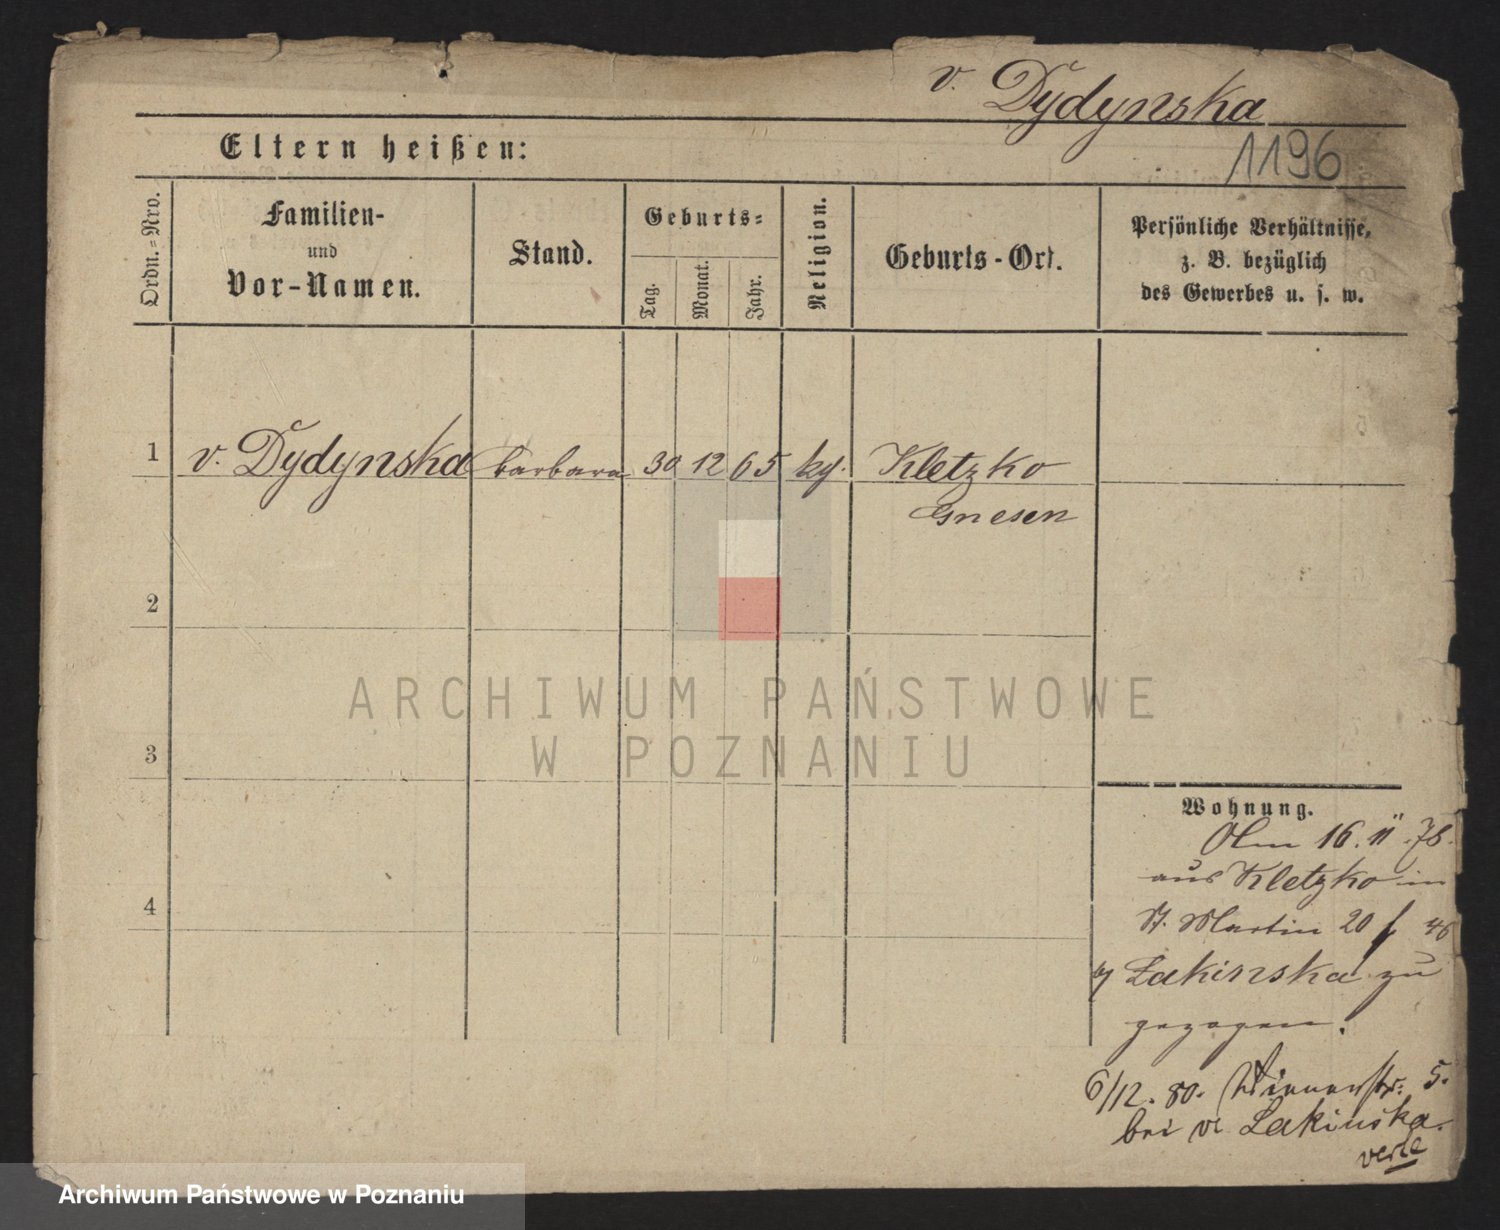 v. Dydynska
1196
Eltern heißen:
Ordn.=Nro.
Familien-
und
Vor-Namen.
Stand.
Geburts=
Tag.
Monat.
Jahr.
Religion.
Geburts-Ort.
Persönliche Verhältnisse,
z. B. bezüglich
des Gewerbes u. s. w.
1 v. Dydynska barbara 30 12 65 kg. Kletzko
Gnesen
2
3
4
Wohnung.
16. 11. 78.
aus Kletzko in
St. Martin 20
Lakinska zu
gezogen.
6/12. 80. Wienerstr: 5.
bei v. Lakinska.
ARCHIWUM PAŃSTWOWE
W POZNANIU
Archiwum Państwowe w Poznaniu